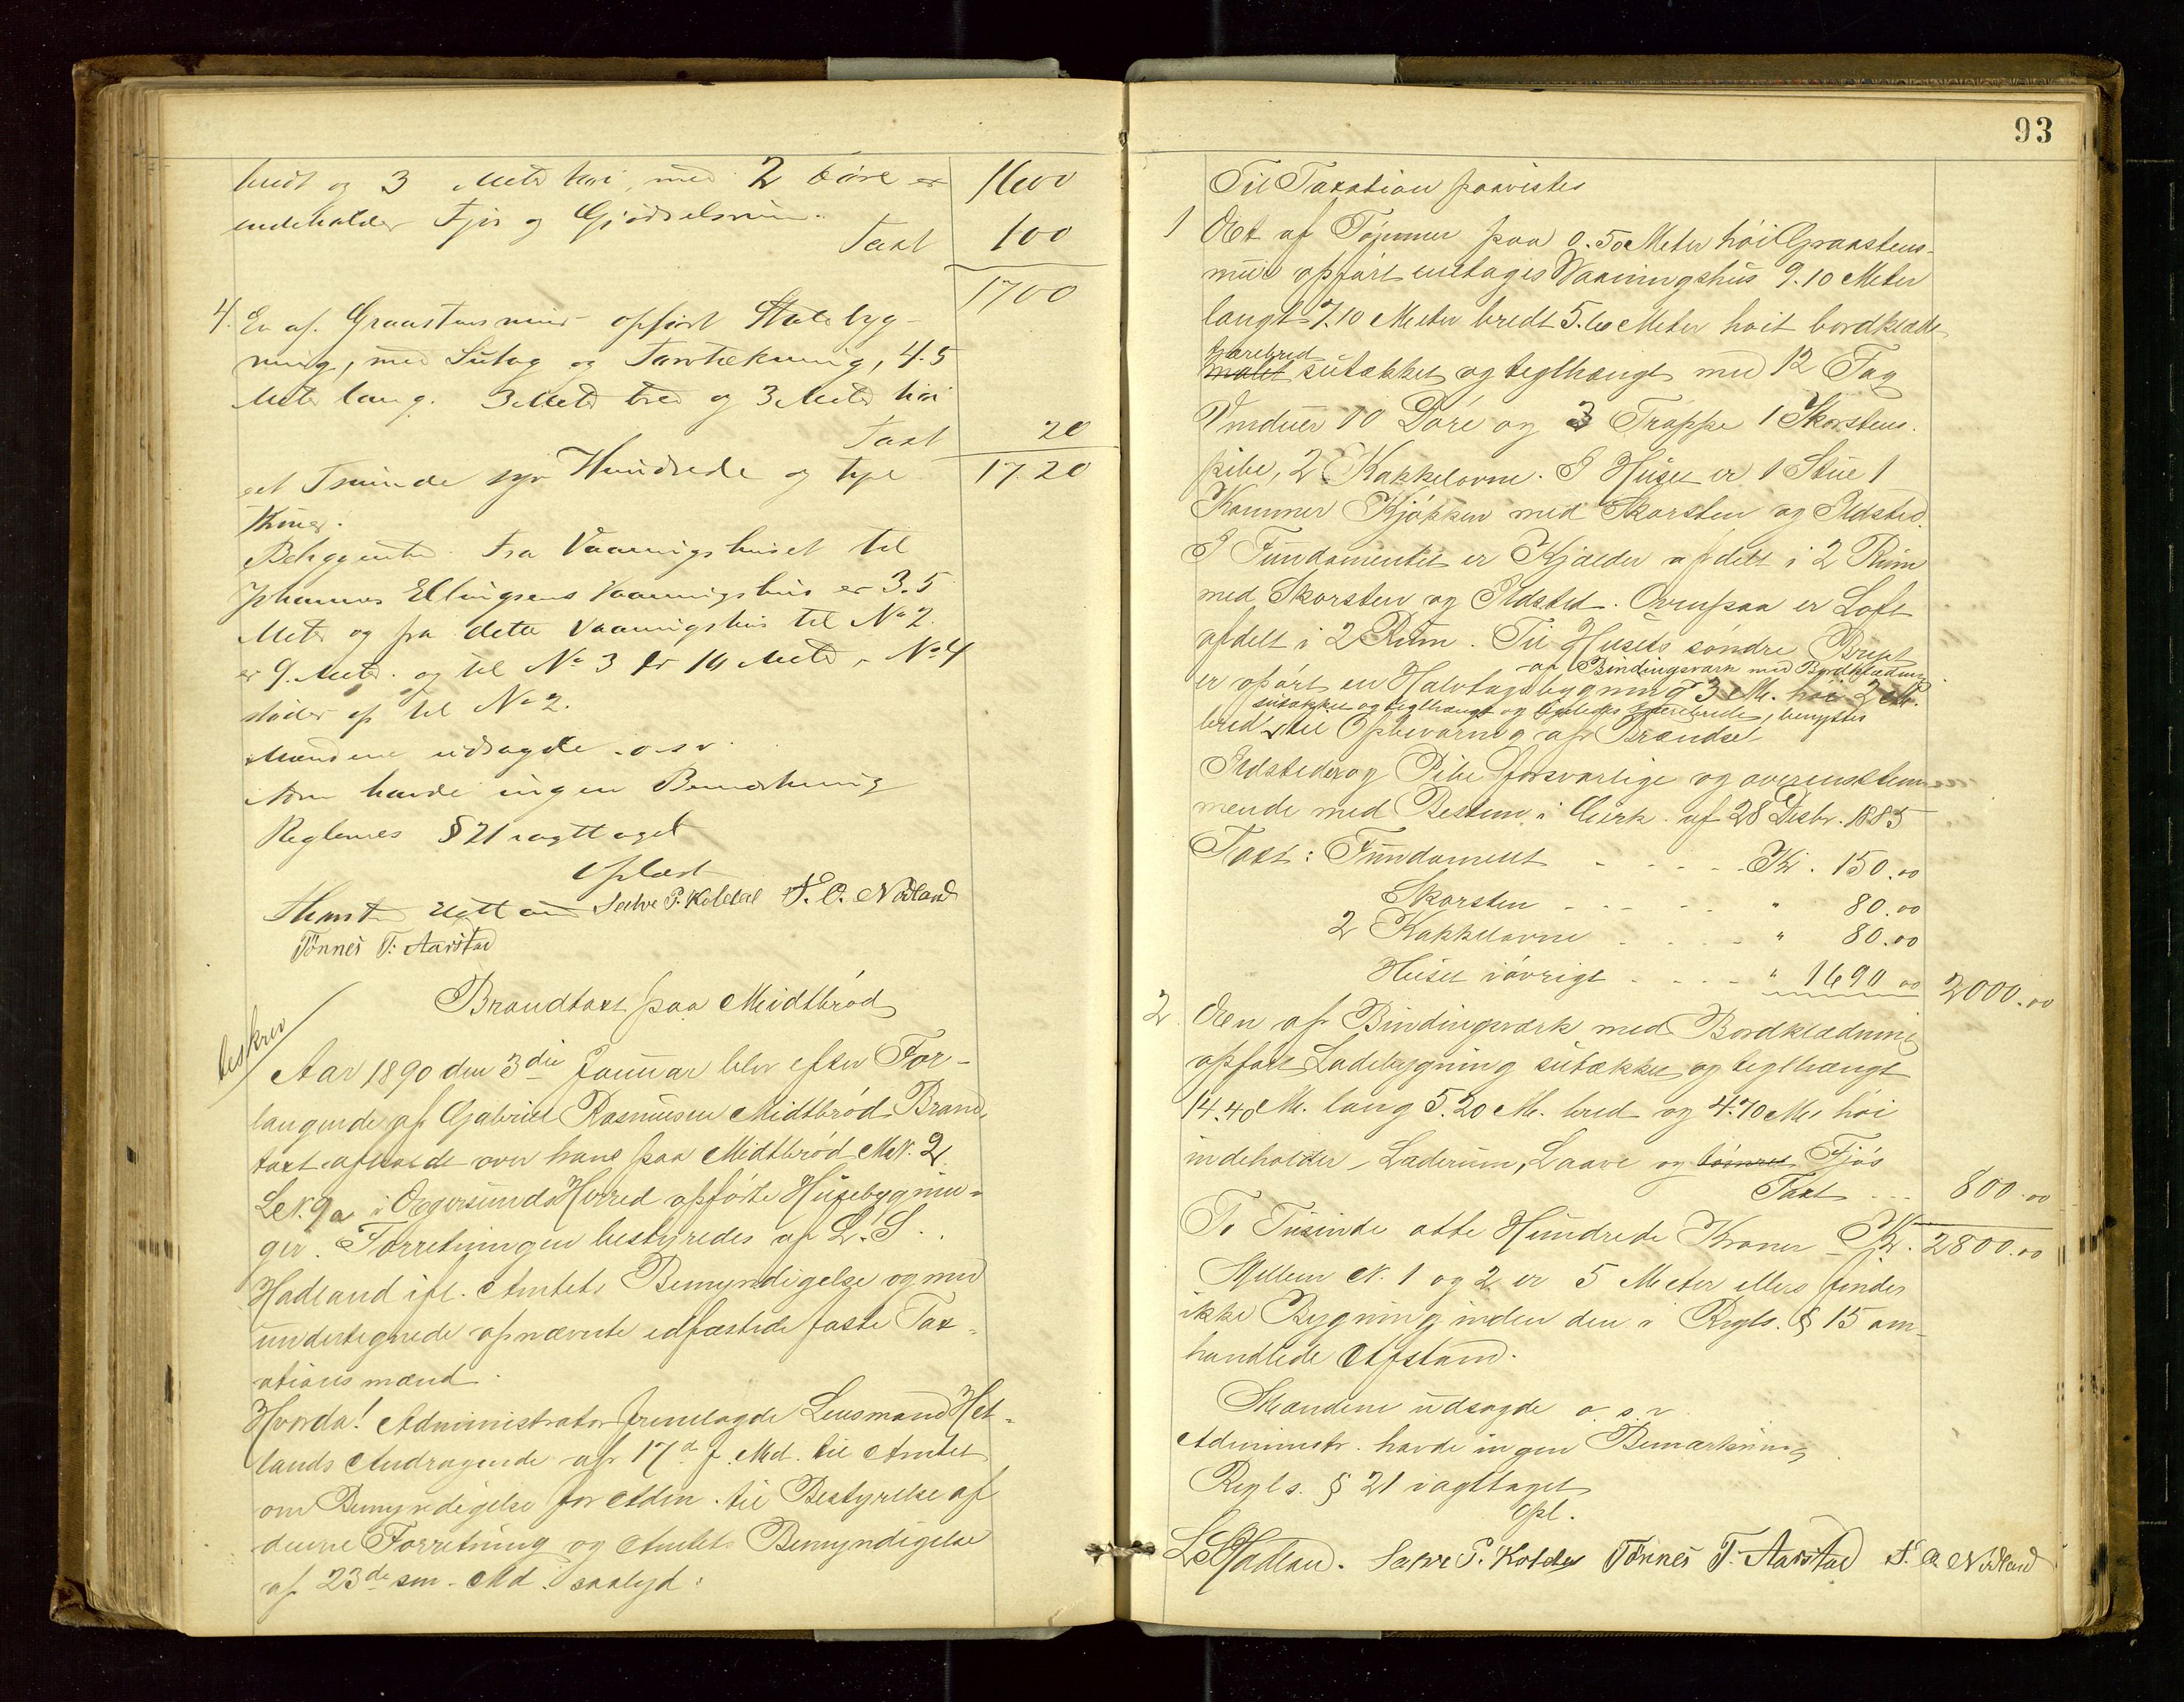 bredt og 3 Meter høi, med 2 Døre er 1600
indeholder Fjøs og Gjødselsrum.
Taxt 100
1700
4. En af Graastensmur opført Stald byg-
ning, med Sutag og Torvtækning, 4.5
Meter lang. 3 Meter bred og 3 Meter høi
Taxt 20
eet Tusinde syv Hundrede og tyve 1720
Kroner.
Beliggenhed. Fra Vaaningshuset til
Johannes Ellingsens Vaaningshus er 3.5
Meter og fra dette Vaaningshus til No 2.
er 9. Meter. og til No 3 er 10 Meter, No 4
støder op til No 2.
Mændene udsagde o.s.v.
Adm havde ingen Bemærkning
Reglernes § 21 iagttaget
Oplæst
Salve P. Koldal S. O. Nodland
Tønnes T. Aarstad
beskrev
Brandtaxt paa Midtbrød
Aar 1890 den 3die Januar blev efter For-
langende af Gabriel Rasmussen Midtbrød Brand-
taxt afholdt over hans paa Midtbrød M.N. 2
L.N. 9a i Egersunds Herred opførte Husebygnin-
ger. Forretningen bestyredes af L. S.
Hadland ifl. Amtets Bemyndigelse og med
undertegnede opnævnte edfæstede faste Tax-
ationsmænd.
Hvorda! Administrator fremlagde Lensmand Het-
lands Andragende af 17de f. Md. til Amtet
om Bemyndigelse for Adm. til Bestyrelse af
denne Forretning og Amtets Bemyndigelse
af 23de sm. Md. saalyd:
93
Til Taxation paavistes
1 Et af Tømmer paa 0.50 Meter høi Graastens-
mur opført eetages Vaaningshus 9.10 Meter
langt 7.10 Meter bredt 5.60 Meter høit bordklædt
tjærebred
malet sutækket og teglhængt med 12 Fag
Vinduer 10 Døre og 3 Trappe 1 Skorstens-
pibe, 2 Kakkelovne. I Huset er 1 Stue 1
Kammer Kjøkken med Skorsten og Ildsted.
I Fundamentet er Kjælder afdelt i 2 Rum
med Skorsten og Ildsted. Ovenpaa er Loft
afdelt i 2 Rum. Til Husets søndre
af Bindingsværk med Bordklædning
er opført en Halvtagsbygning 3 M. høi 2 M.
sutækket og teglhængt og ligeledes tjærebredt, benyttes
bred til Opbevaring af Brændsel
Ildsteder og Pibe forsvarlige og overensstem-
mende med Bestem. i Cirk. af 28 Desbr. 1885
Taxt: Fundament - - - Kr. 150.00
Skorsten - - - " 80.00
2 Kakkelovne - - - " 80.00
Huset iøvrigt - - - " 1690 00 2000.00
2 En af Bindingsværk med Bordklædning
opført Ladebygning sutækket og teglhængt
14.40 M. lang 5.20 M. bred og 4.70 M. høi
indeholder, Laderum, Laave og tømret Fjøs
Taxt - - 800.00
To Tusinde otte Hundrede Kroner - Kr. 2800.00
Mellem N. 1 og 2 er 5 Meter ellers findes
ikke Bygning inden den i Regls. § 15 om-
handlede Afstand.
Mændene udsagde o.s.v
Administr. havde ingen Bemærkning
Regls. § 21 iagttaget
Opl.
L S Hadland. Salve P. Koldal Tønnes T. Aarstad S. O. Nodland